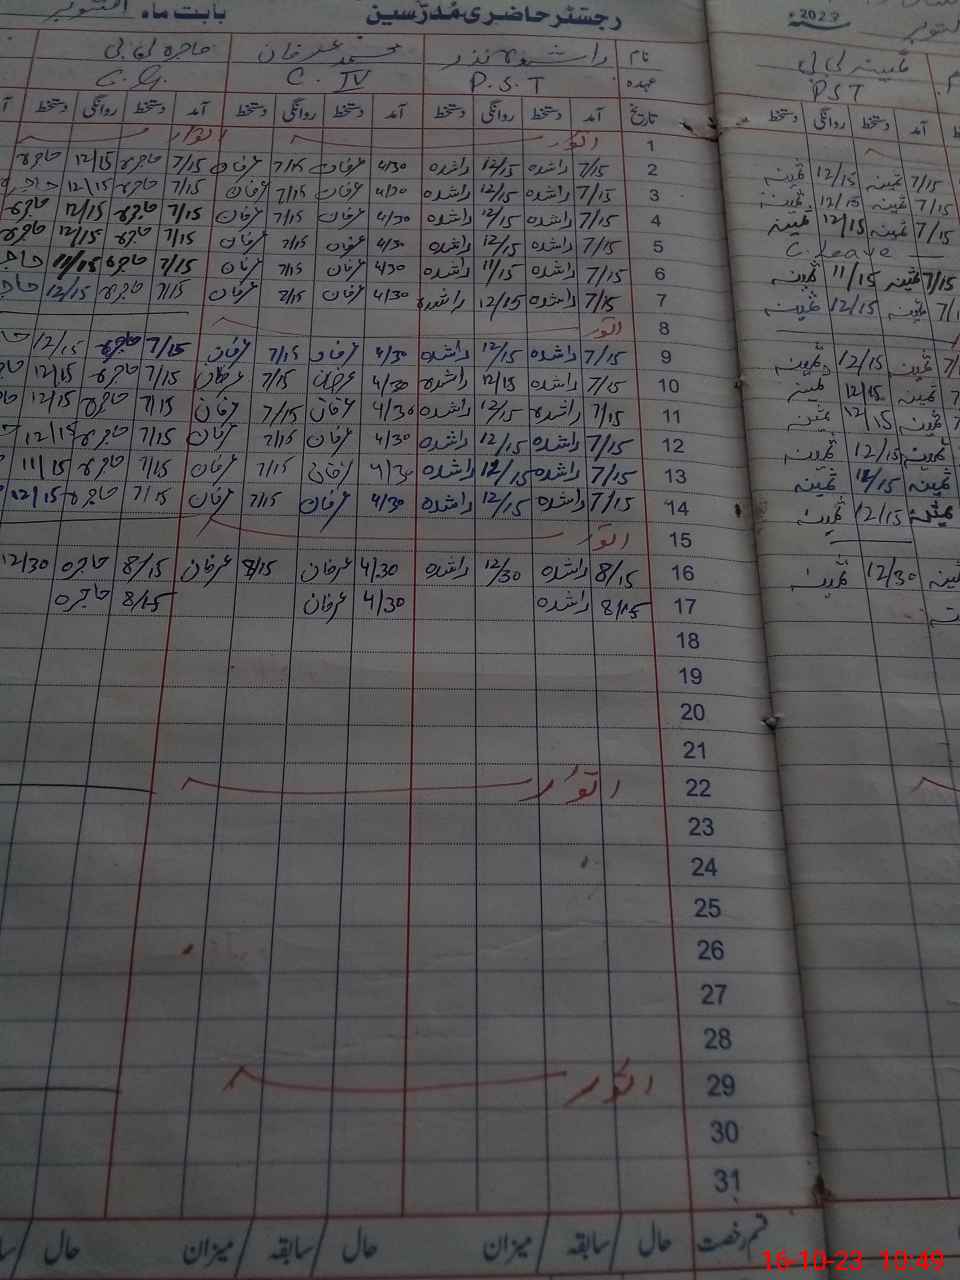 رجسٹر حاضری مُدرّسین بابت ماہ اکتوبر
2023
نام راشدہ نذر محمد عرفان حاجرہ بی بی
عہدہ P.S.T C. IV
ثمینہ بی بی
PST
تاریخ آمد دستخط روانگی دستخط آمد دستخط روانگی دستخط آمد دستخط روانگی دستخط
آمد دستخط روانگی دستخط
1 اتوار اتوار
2 7/15 راشدہ 12/15 راشدہ 4/30 عرفان 7/15 عرفان 7/15 حاجرہ 12/15 حاجرہ
7/15 ثمینہ 12/15 ثمینہ
3 7/15 راشدہ 12/15 راشدہ 4/30 عرفان 7/15 عرفان 7/15 حاجرہ 12/15 حاجرہ
7/15 ثمینہ 12/15 ثمینہ
4 7/15 راشدہ 12/15 راشدہ 4/30 عرفان 7/15 عرفان 7/15 حاجرہ 12/15 حاجرہ
7/15 ثمینہ 12/15 ثمینہ
5 7/15 راشدہ 12/15 راشدہ 4/30 عرفان 7/15 عرفان 7/15 حاجرہ 12/15 حاجرہ
C. Leave
6 7/15 راشدہ 11/15 راشدہ 4/30 عرفان 7/15 عرفان 7/15 حاجرہ 11/15
7/15 ثمینہ 11/15 ثمینہ
7 7/15 راشدہ 12/15 راشدہ 4/30 عرفان 7/15 عرفان 7/15 حاجرہ 12/15
ثمینہ 12/15 ثمینہ
8 اتوار
9 7/15 راشدہ 12/15 راشدہ 4/30 عرفان 7/15 عرفان 7/15 حاجرہ 12/15
ثمینہ 12/15 ثمینہ
10 7/15 راشدہ 12/15 راشدہ 4/30 عرفان 7/15 عرفان 7/15 حاجرہ 12/15
ثمینہ 12/15 ثمینہ
11 7/15 راشدہ 12/15 راشدہ 4/30 عرفان 7/15 عرفان 7/15 حاجرہ 12/15
ثمینہ 12/15 ثمینہ
12 7/15 راشدہ 12/15 راشدہ 4/30 عرفان 7/15 عرفان 7/15 حاجرہ 12/15
ثمینہ 12/15 ثمینہ
13 7/15 راشدہ 12/15 راشدہ 4/30 عرفان 7/15 عرفان 7/15 حاجرہ 11/15
ثمینہ 12/15 ثمینہ
14 7/15 راشدہ 12/15 راشدہ 4/30 عرفان 7/15 عرفان 7/15 حاجرہ 12/15
ثمینہ 12/15 ثمینہ
15 اتوار
16 8/15 راشدہ 12/30 راشدہ 4/30 عرفان 8/15 عرفان 8/15 حاجرہ 12/30
ثمینہ 12/30 ثمینہ
17 8/15 راشدہ 4/30 عرفان 8/15 حاجرہ
18
19
20
21
22 اتوار
23
24
25
26
27
28
29 اتوار
30
31
قسم رخصت حال سابقہ میزان حال سابقہ میزان حال
16-10-23 10:49